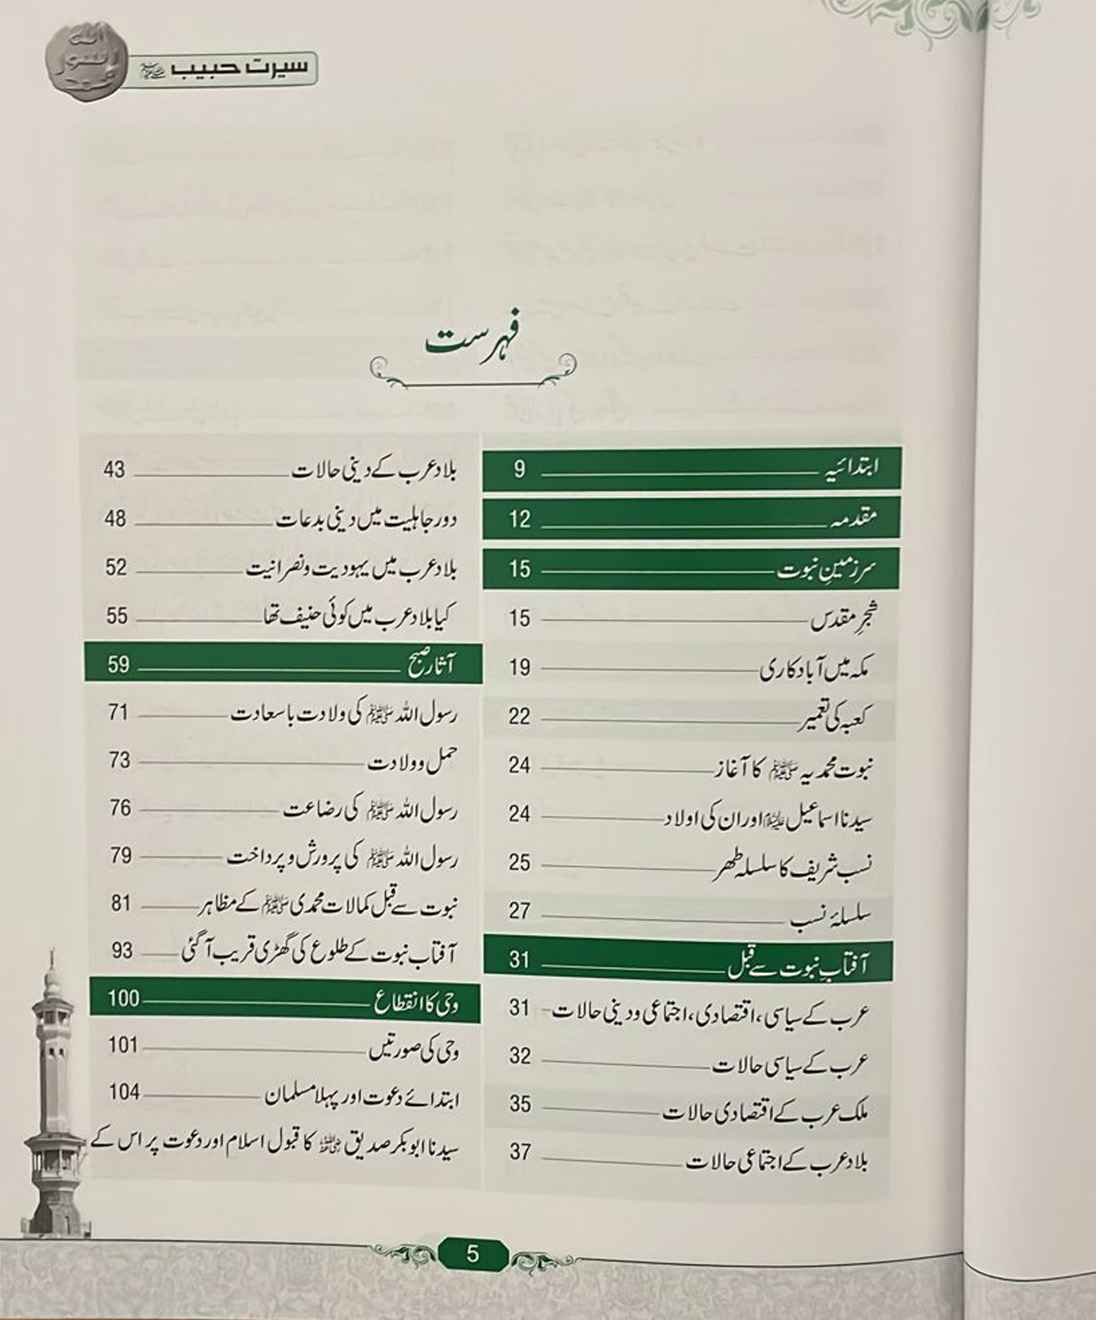 سیرت حبیب ﷺ
اللہ
رسول
محمد
فہرست
ابتدائیہ 9
مقدمہ 12
سرزمینِ نبوت 15
شجرِ مقدس 15
مکہ میں آبادکاری 19
کعبہ کی تعمیر 22
نبوت محمدیہ ﷺ کا آغاز 24
سیدنا اسماعیل علیہ السلام اور ان کی اولاد 24
نسب شریف کا سلسلہ طھر 25
سلسلۂ نسب 27
آفتابِ نبوت سے قبل 31
عرب کے سیاسی، اقتصادی، اجتماعی و دینی حالات 31
عرب کے سیاسی حالات 32
ملک عرب کے اقتصادی حالات 35
بلاد عرب کے اجتماعی حالات 37
بلاد عرب کے دینی حالات 43
دور جاہلیت میں دینی بدعات 48
بلاد عرب میں یہودیت و نصرانیت 52
کیا بلاد عرب میں کوئی حنیف تھا 55
آثار صبح 59
رسول اللہ ﷺ کی ولادت باسعادت 71
حمل و ولادت 73
رسول اللہ ﷺ کی رضاعت 76
رسول اللہ ﷺ کی پرورش و پرداخت 79
نبوت سے قبل کمالات محمدی ﷺ کے مظاہر 81
آفتاب نبوت کے طلوع کی گھڑی قریب آ گئی 93
وحی کا انقطاع 100
وحی کی صورتیں 101
ابتدائے دعوت اور پہلا مسلمان 104
سیدنا ابوبکر صدیق رضی اللہ عنہ کا قبول اسلام اور دعوت پر اس کے
5